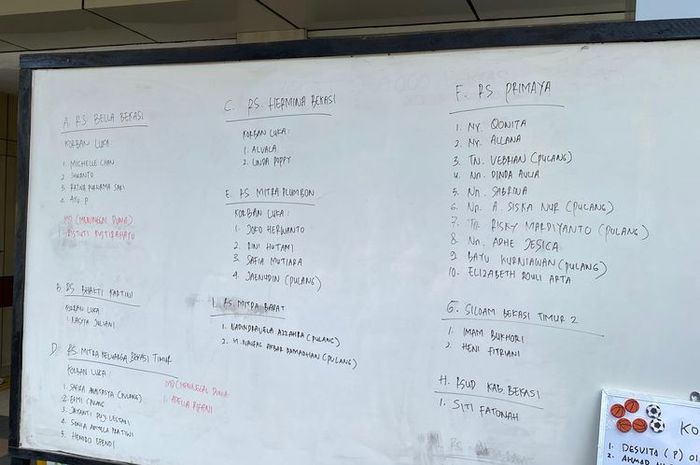 A. RS BELLA BEKASI
KORBAN LUKA
1. MICHELLE CHAN
2. SUKANTO
3. RATNA PURNAMA SARI
4. P
MD (MENINGGAL DUNIA)
1.
B. RS. BHAKTI KARTINI
KORBAN LUKA
1. NASYA JULIANI
D. RS. MITRA KELUARGA BEKASI TIMUR
KORBAN LUKA:
1. (PULANG)
2.
3. LESTARI
4.
5. HENDRO EFENDI
MD (MENINGGAL DUNIA
1. ADELIA RIFANI
C. RS. HERMINA BEKASI
KORBAN LUKA:
1. ALVALA
2. LINDA POPPY
E. RS MITRA PLUMBON
KORBAN LUKA:
1. JOKO HERWANTO
2. DINI HUTAMI
3. SAFIA MUTIARA
4. JAENUDIN (PULANG)
I. RS. MITRA BARAT
1. AZZAHRA (PULANG)
2. M. NAUFAL AKBAR RAMADHAN (PULANG)
F. RS PRIMAYA
1. NY. QONITA
2. NY. ALLANA
3. TN. VEBRIAN (PULANG)
4. Nn. DINDA AULIA
5. Nn. SABRINA
6. Nn. A. SISKA NUR (PULANG)
7. Tn. RISKY MARDIYANTO (PULANG)
8. Nn. ADHE JESICA
9. BAYU KURNIAWAN (PULANG)
10. ELIZABETH ROULI ARTA
G. SILOAM BEKASI TIMUR 2
1. IMAM BUKHORI
2. HENI FITRIANI
H. RSUD KAB. BEKASI
1. SITI FATONAH
KO
1. DESVITA (P) 01
2. AHMAD